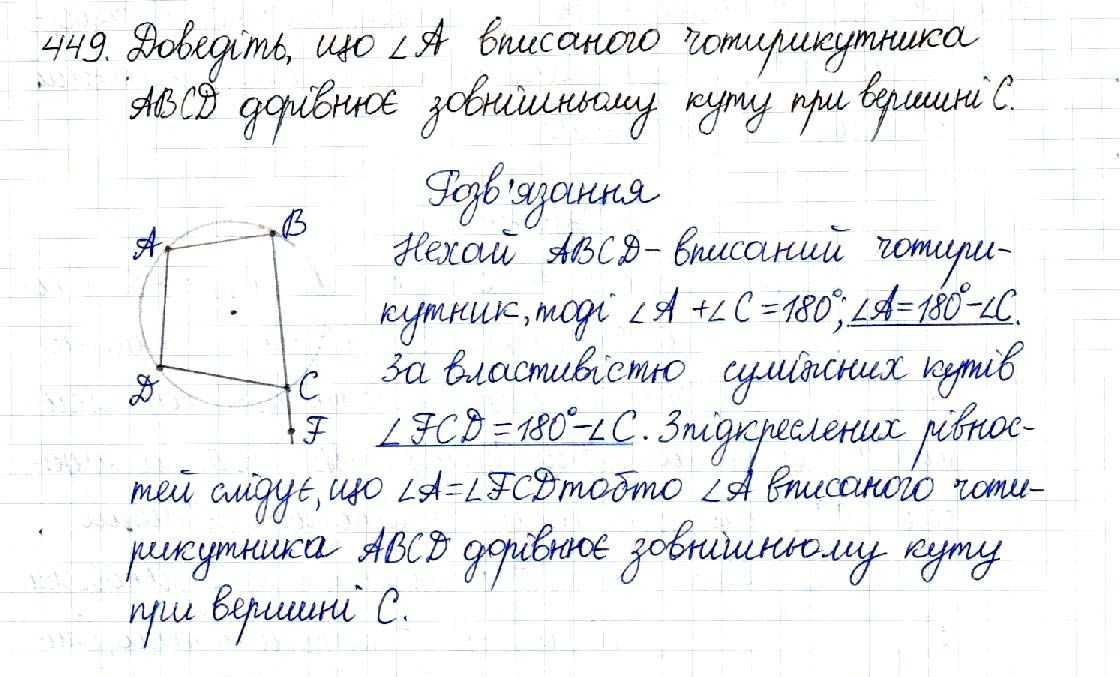 449. Доведіть, що ∠A вписаного чотирикутника
ABCD дорівнює зовнішньому куту при вершині C.
Розв'язання
A
B
D
C
F
Нехай ABCD - вписаний чотири-
кутник, тоді ∠A + ∠C = 180°; ∠A = 180° - ∠C.
За властивістю суміжних кутів
∠FCD = 180° - ∠C. З підкреслених рівнос-
тей слідує, що ∠A = ∠FCD тобто ∠A вписаного чоти-
рикутника ABCD дорівнює зовнішньому куту
при вершині C.